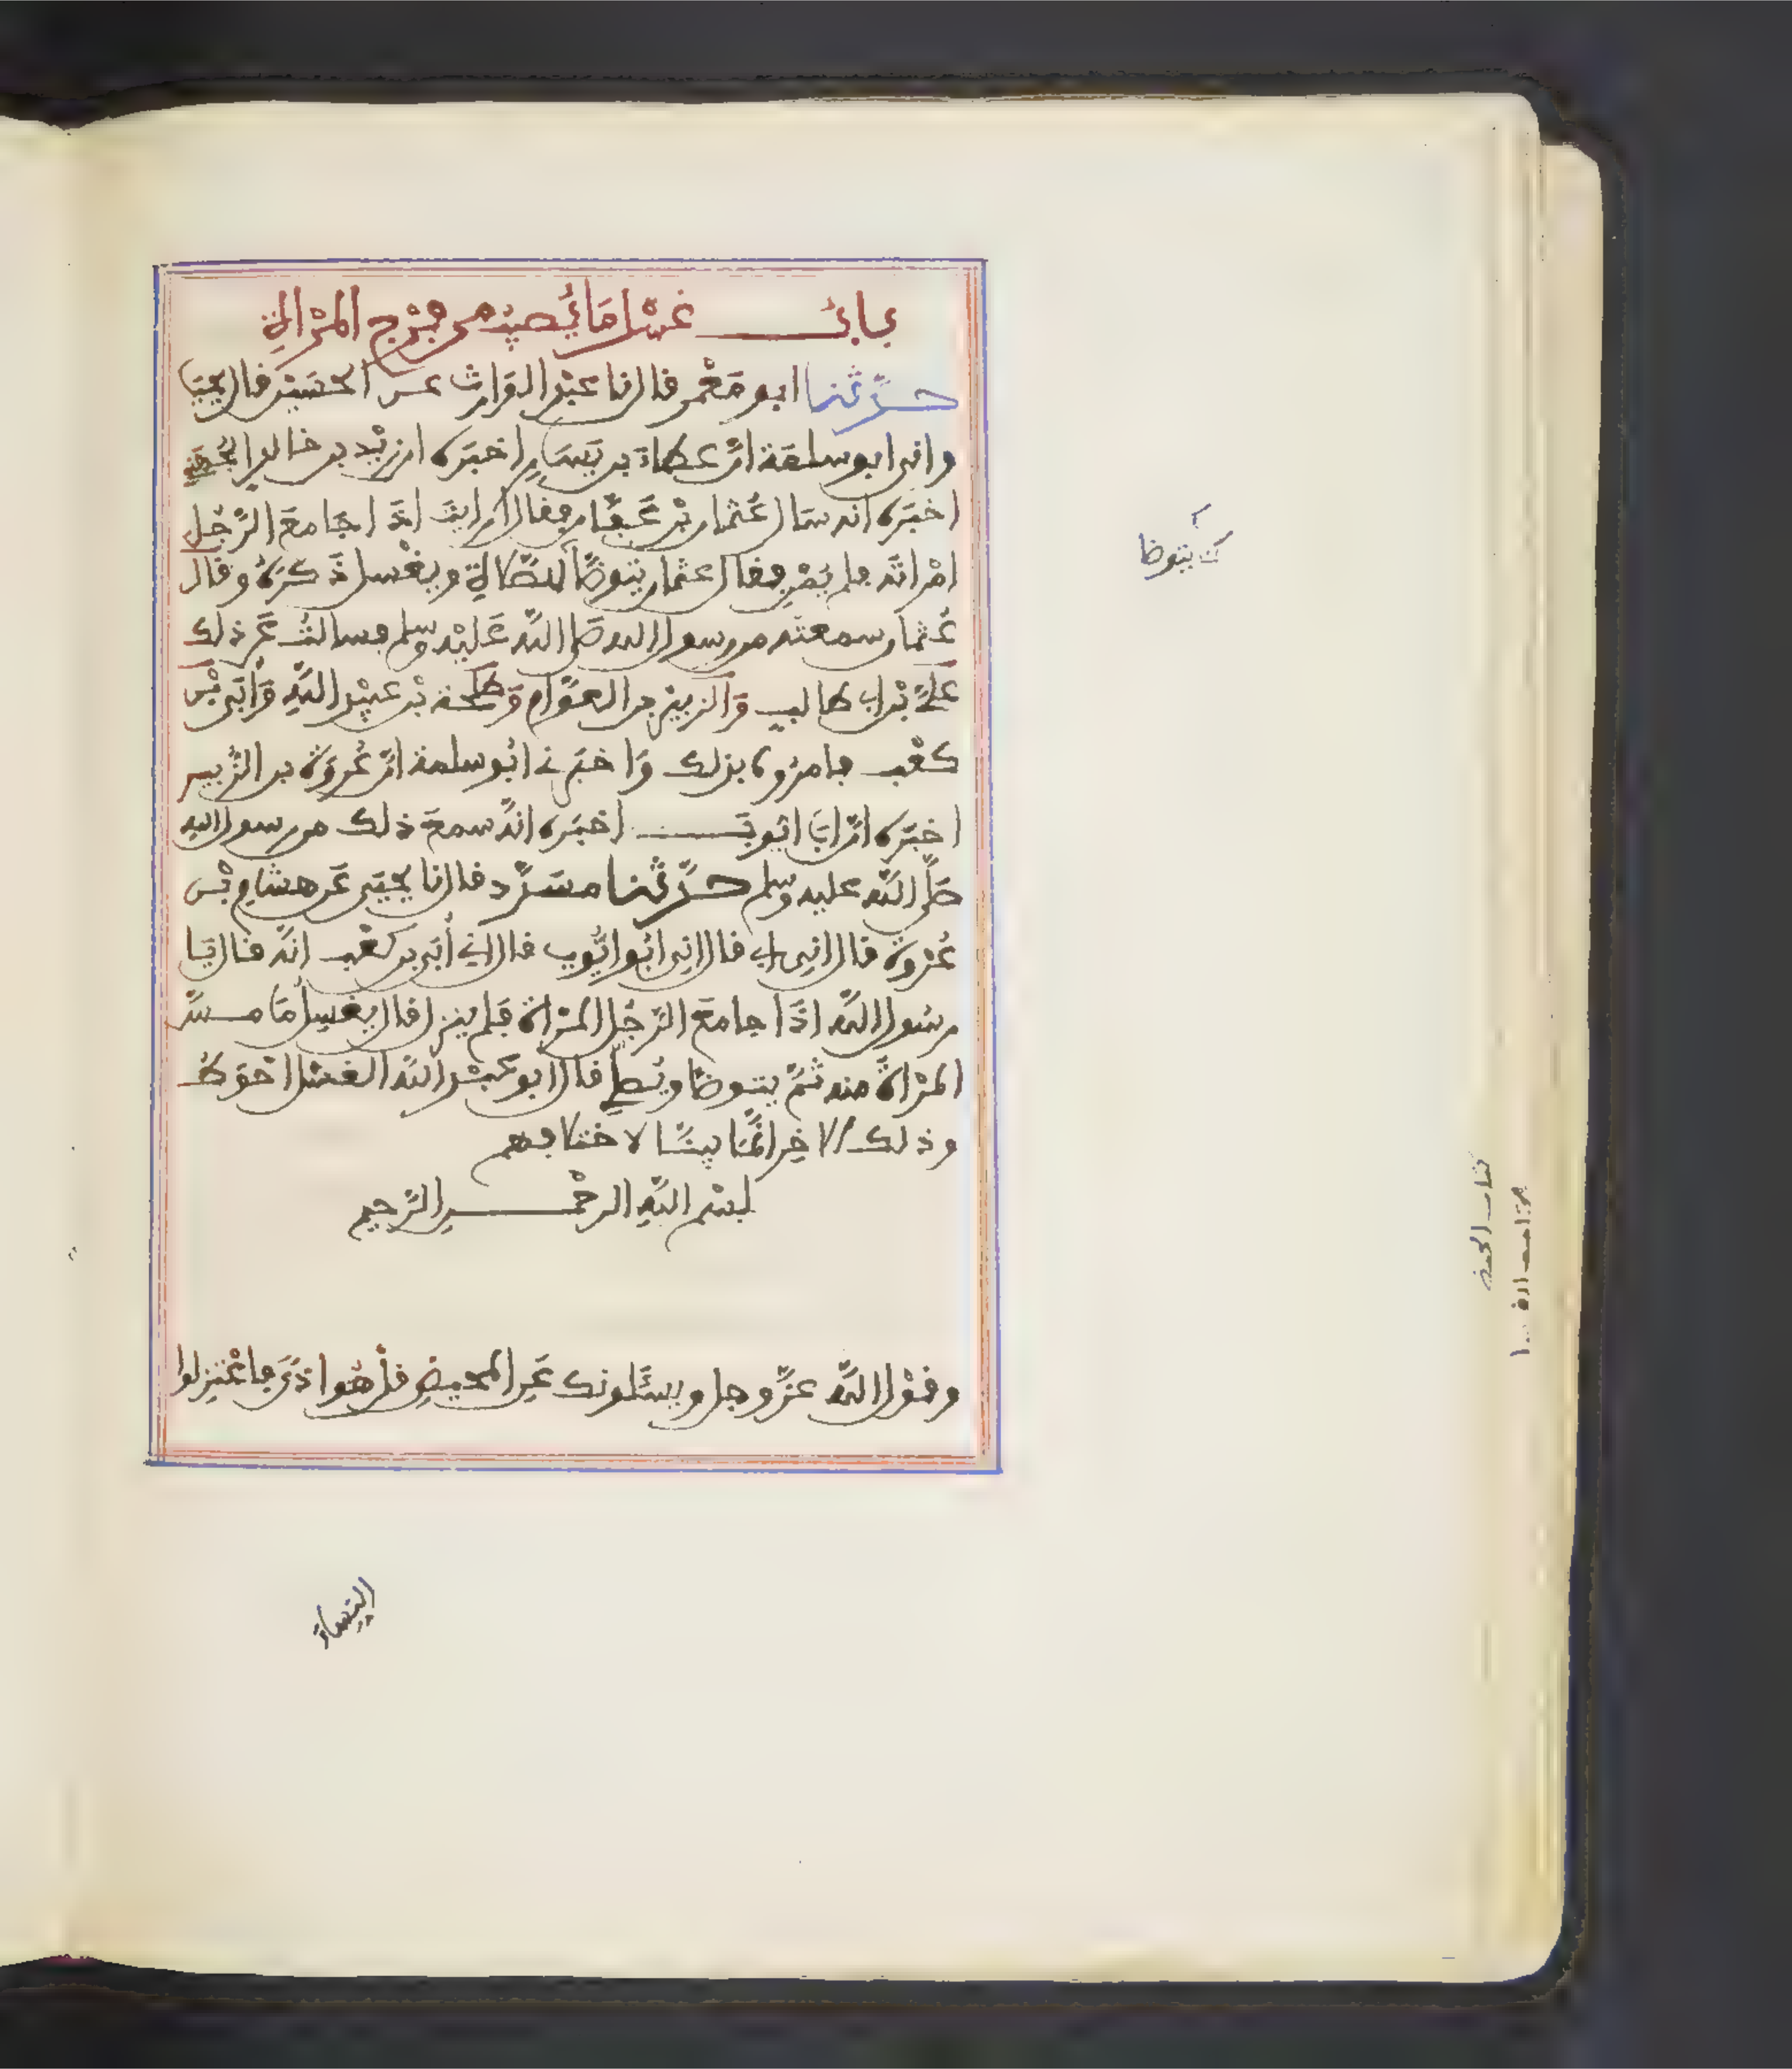 بابُ غسْل مَا يُصِيبُ من فَرْج المرْأة
حدّثنا ابو مَعْمر قال نا عبْد الوَارث عن الحسَيْن قال يحيَى
واني ابو سلمَة انّ عطاءَ بن يَسَارٍ اخبَره ان زيْد بن خالدٍ الجُهَنِي
اخبَره انه سَال عُثمان بْن عَفّان فقال ارايتَ اذَا جَامعَ الرّجُل
امْراتَه فلم يُمْنِ فقال عثمان يتوضّأ للصّلاة ويغْسل ذَكرَهُ وقال
عُثمان سمعته من رسول الله صَلى اللّه عَليْه وسلم فسالتُ عَن ذلك
عَليَّ بْن ابي طالبٍ وَالزبيْر بن العوَّام وَطلحة بْن عبيْد اللّهِ وَأبَي بْن
كعْب فامروه بذلك وَاخبَرني ابُو سلمة انّ عُروَة بن الزُّبير
اخبَره انّ ابَا ايوبَ اخبَره انهُ سمعَ ذلك من رسول الله
صَلّى اللّه عليه وسلم حدّثنا مسَدّد قال نا يحيَى عَن هشام بْن
عُرْوة قال اني ابي قال اني ابُو ايُّوب قال اني أبَي بن كعْب انّه قال يَا
رسُول اللّه اذَا جامعَ الرّجُل المرْاة فَلم ينزل قال يغسِل مَا مسّ
المرْاةَ منه ثمّ يتوضا ويُصلِّي قال ابو عبْد اللّه الغسْل احْوَطُ
وذلك الاخِر انّمَا بينّا لاختلافهم
بسْم اللّهِ الرحْمن الرّحيم
وقوْل اللّه عزّ وجل ويسْئَلونك عَنِ المحيضِ قلْ هُو اذًى فاعْتزِلوا
يتوضا
النِّساءَ